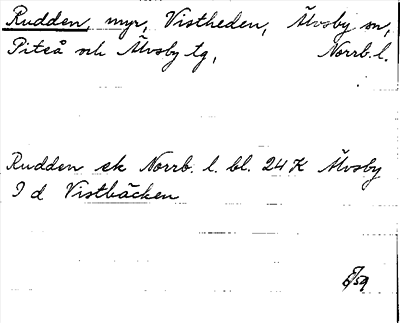 Rudden, myr, Vistheden, Älvsby sn,
Piteå och Älvsby tg, Norrb. l.
Rudden ek Norrb. l. bl. 24 K Älvsby
9 d Vistbäcken
/59